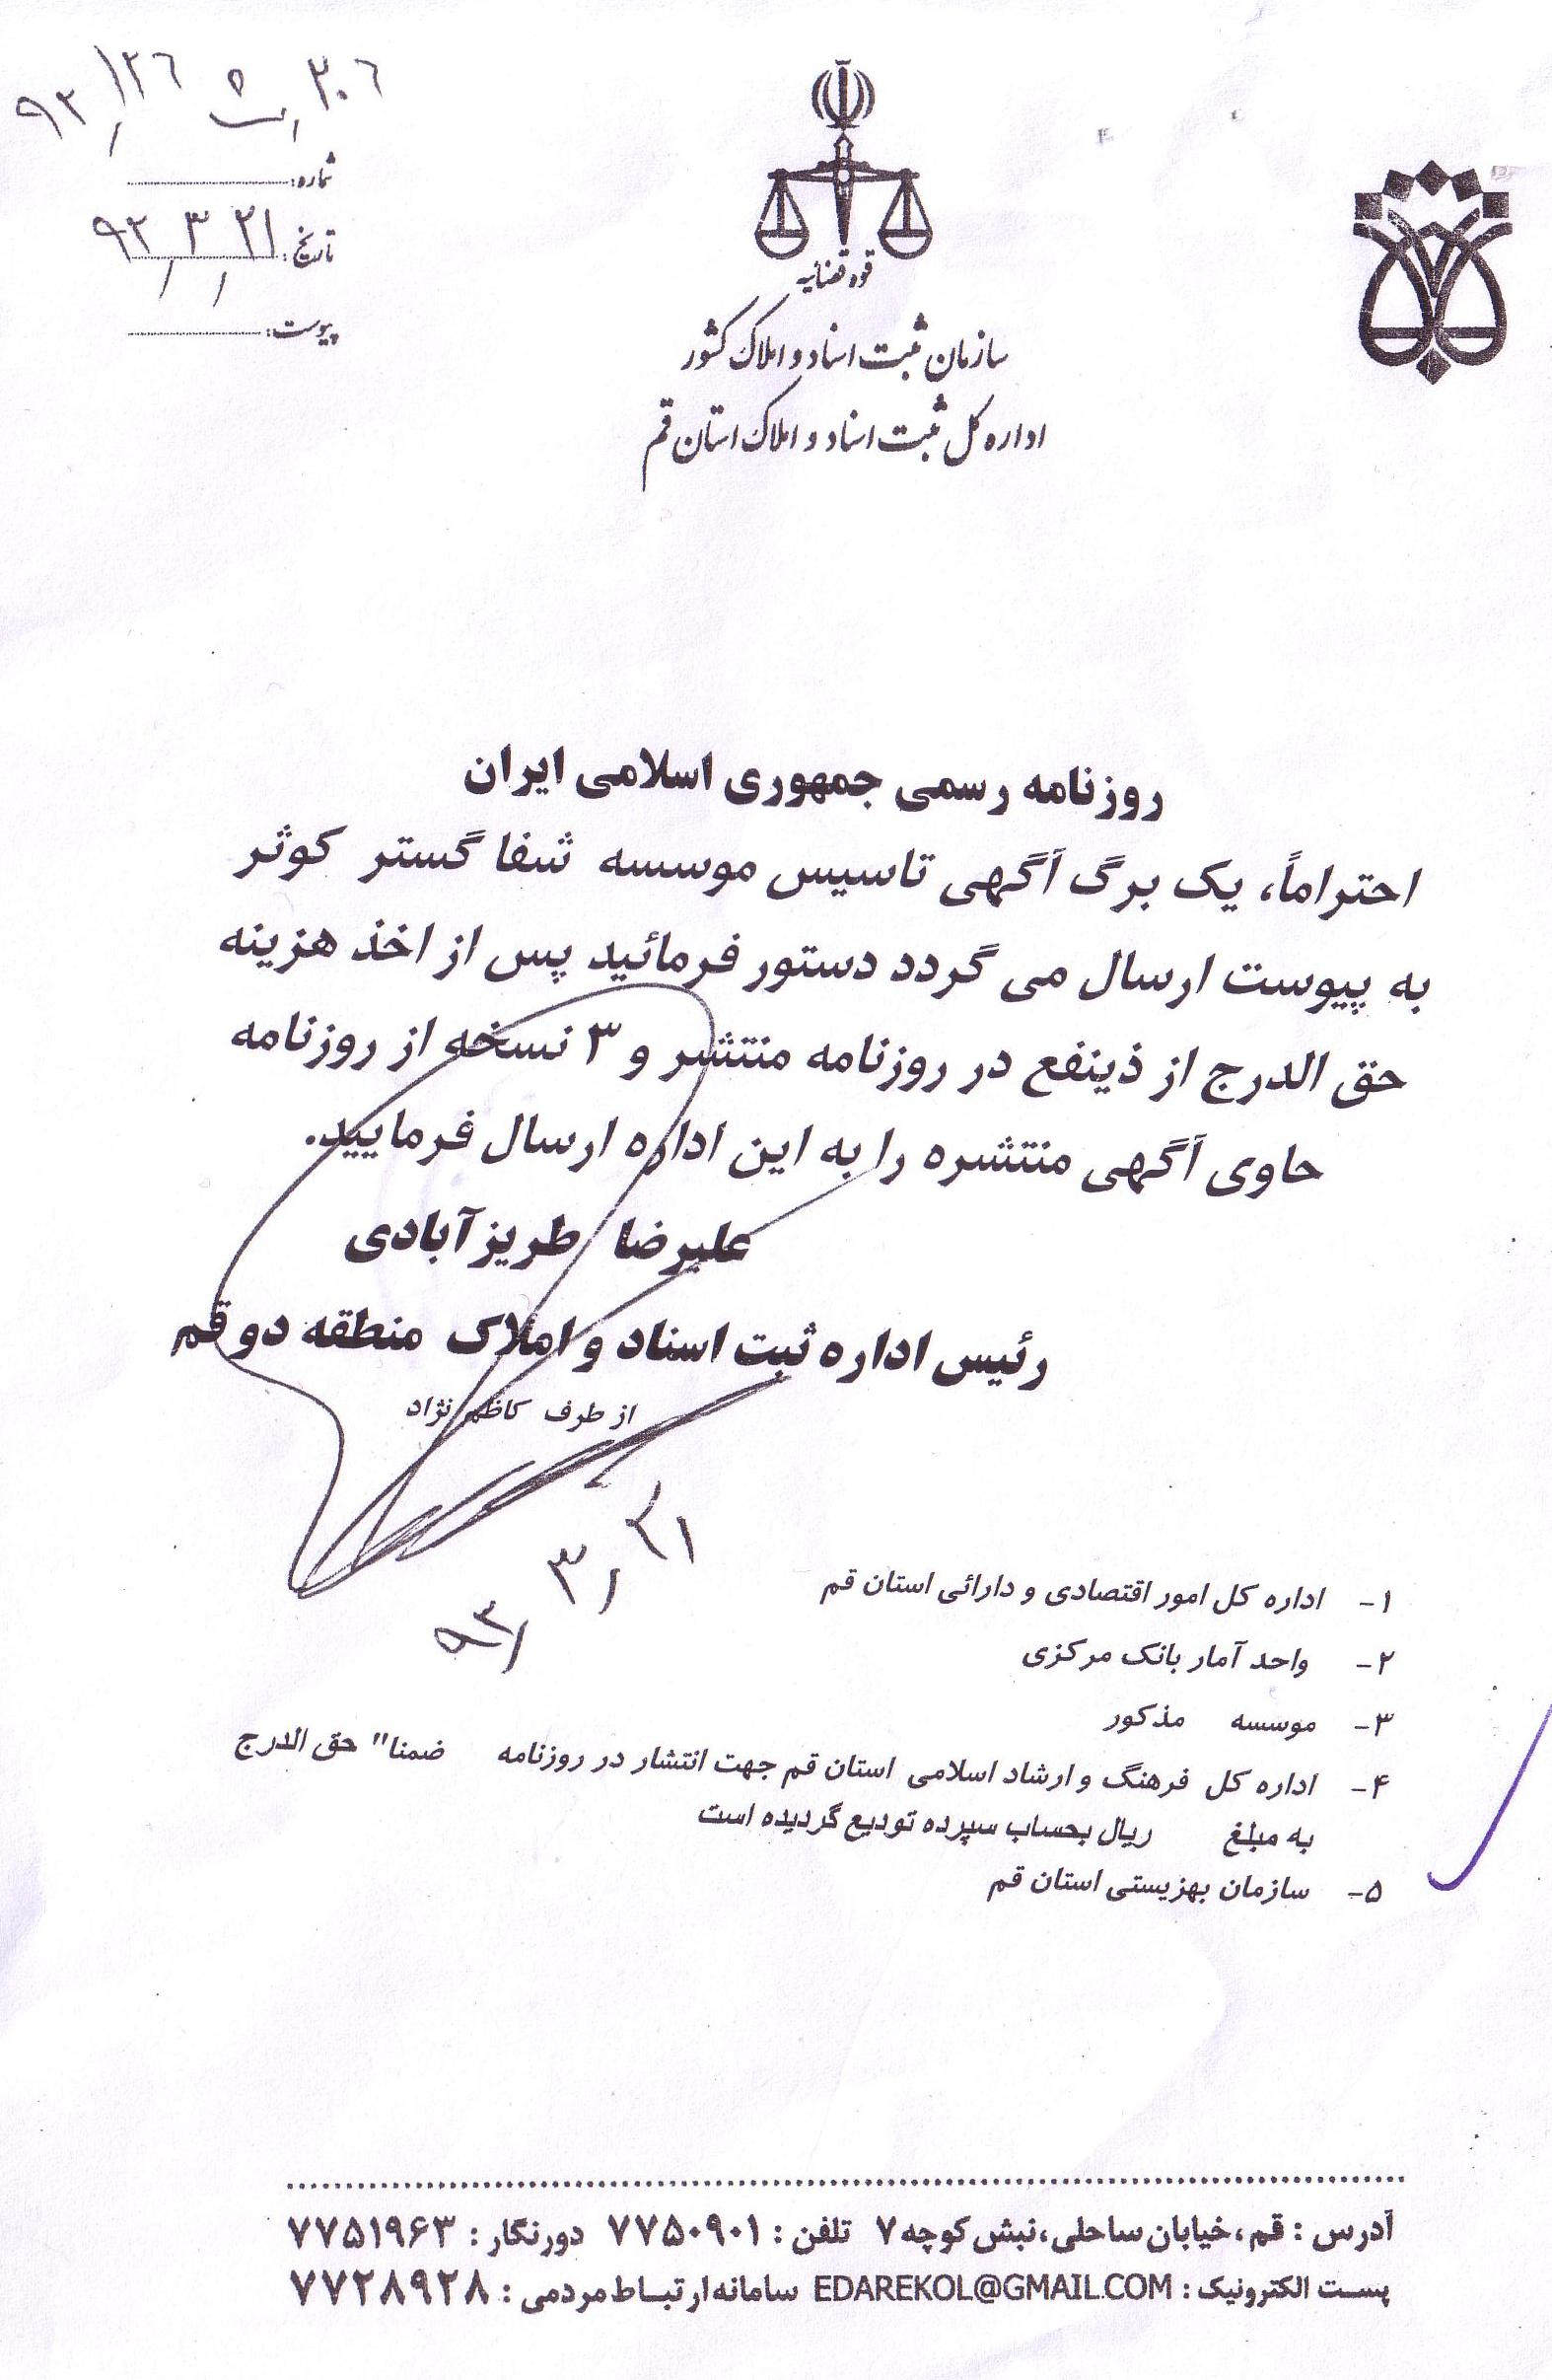 شماره:
تاریخ: ۹۳/۳/۲۱
پیوست:
قوه قضائیه
سازمان ثبت اسناد و املاک کشور
اداره کل ثبت اسناد و املاک استان قم
روزنامه رسمی جمهوری اسلامی ایران
احتراماً، یک برگ آگهی تاسیس موسسه شفا گستر کوثر
به پیوست ارسال می گردد دستور فرمائید پس از اخذ هزینه
حق الدرج از ذینفع در روزنامه منتشر و ۳ نسخه از روزنامه
حاوی آگهی منتشره را به این اداره ارسال فرمایید.
علیرضا طریزآبادی
رئیس اداره ثبت اسناد و املاک منطقه دو قم
از طرف کاظم نژاد
۹۳/۳/۲۱
۱- اداره کل امور اقتصادی و دارائی استان قم
۲- واحد آمار بانک مرکزی
۳- موسسه مذکور
۴- اداره کل فرهنگ و ارشاد اسلامی استان قم جهت انتشار در روزنامه ضمنا" حق الدرج
به مبلغ ریال بحساب سپرده تودیع گردیده است
۵- سازمان بهزیستی استان قم
آدرس : قم ، خیابان ساحلی ، نبش کوچه ۷ تلفن : ۷۷۵۰۹۰۱ دورنگار : ۷۷۵۱۹۶۳
پست الکترونیک : EDAREKOL@GMAIL.COM سامانه ارتباط مردمی : ۷۷۲۸۹۲۸